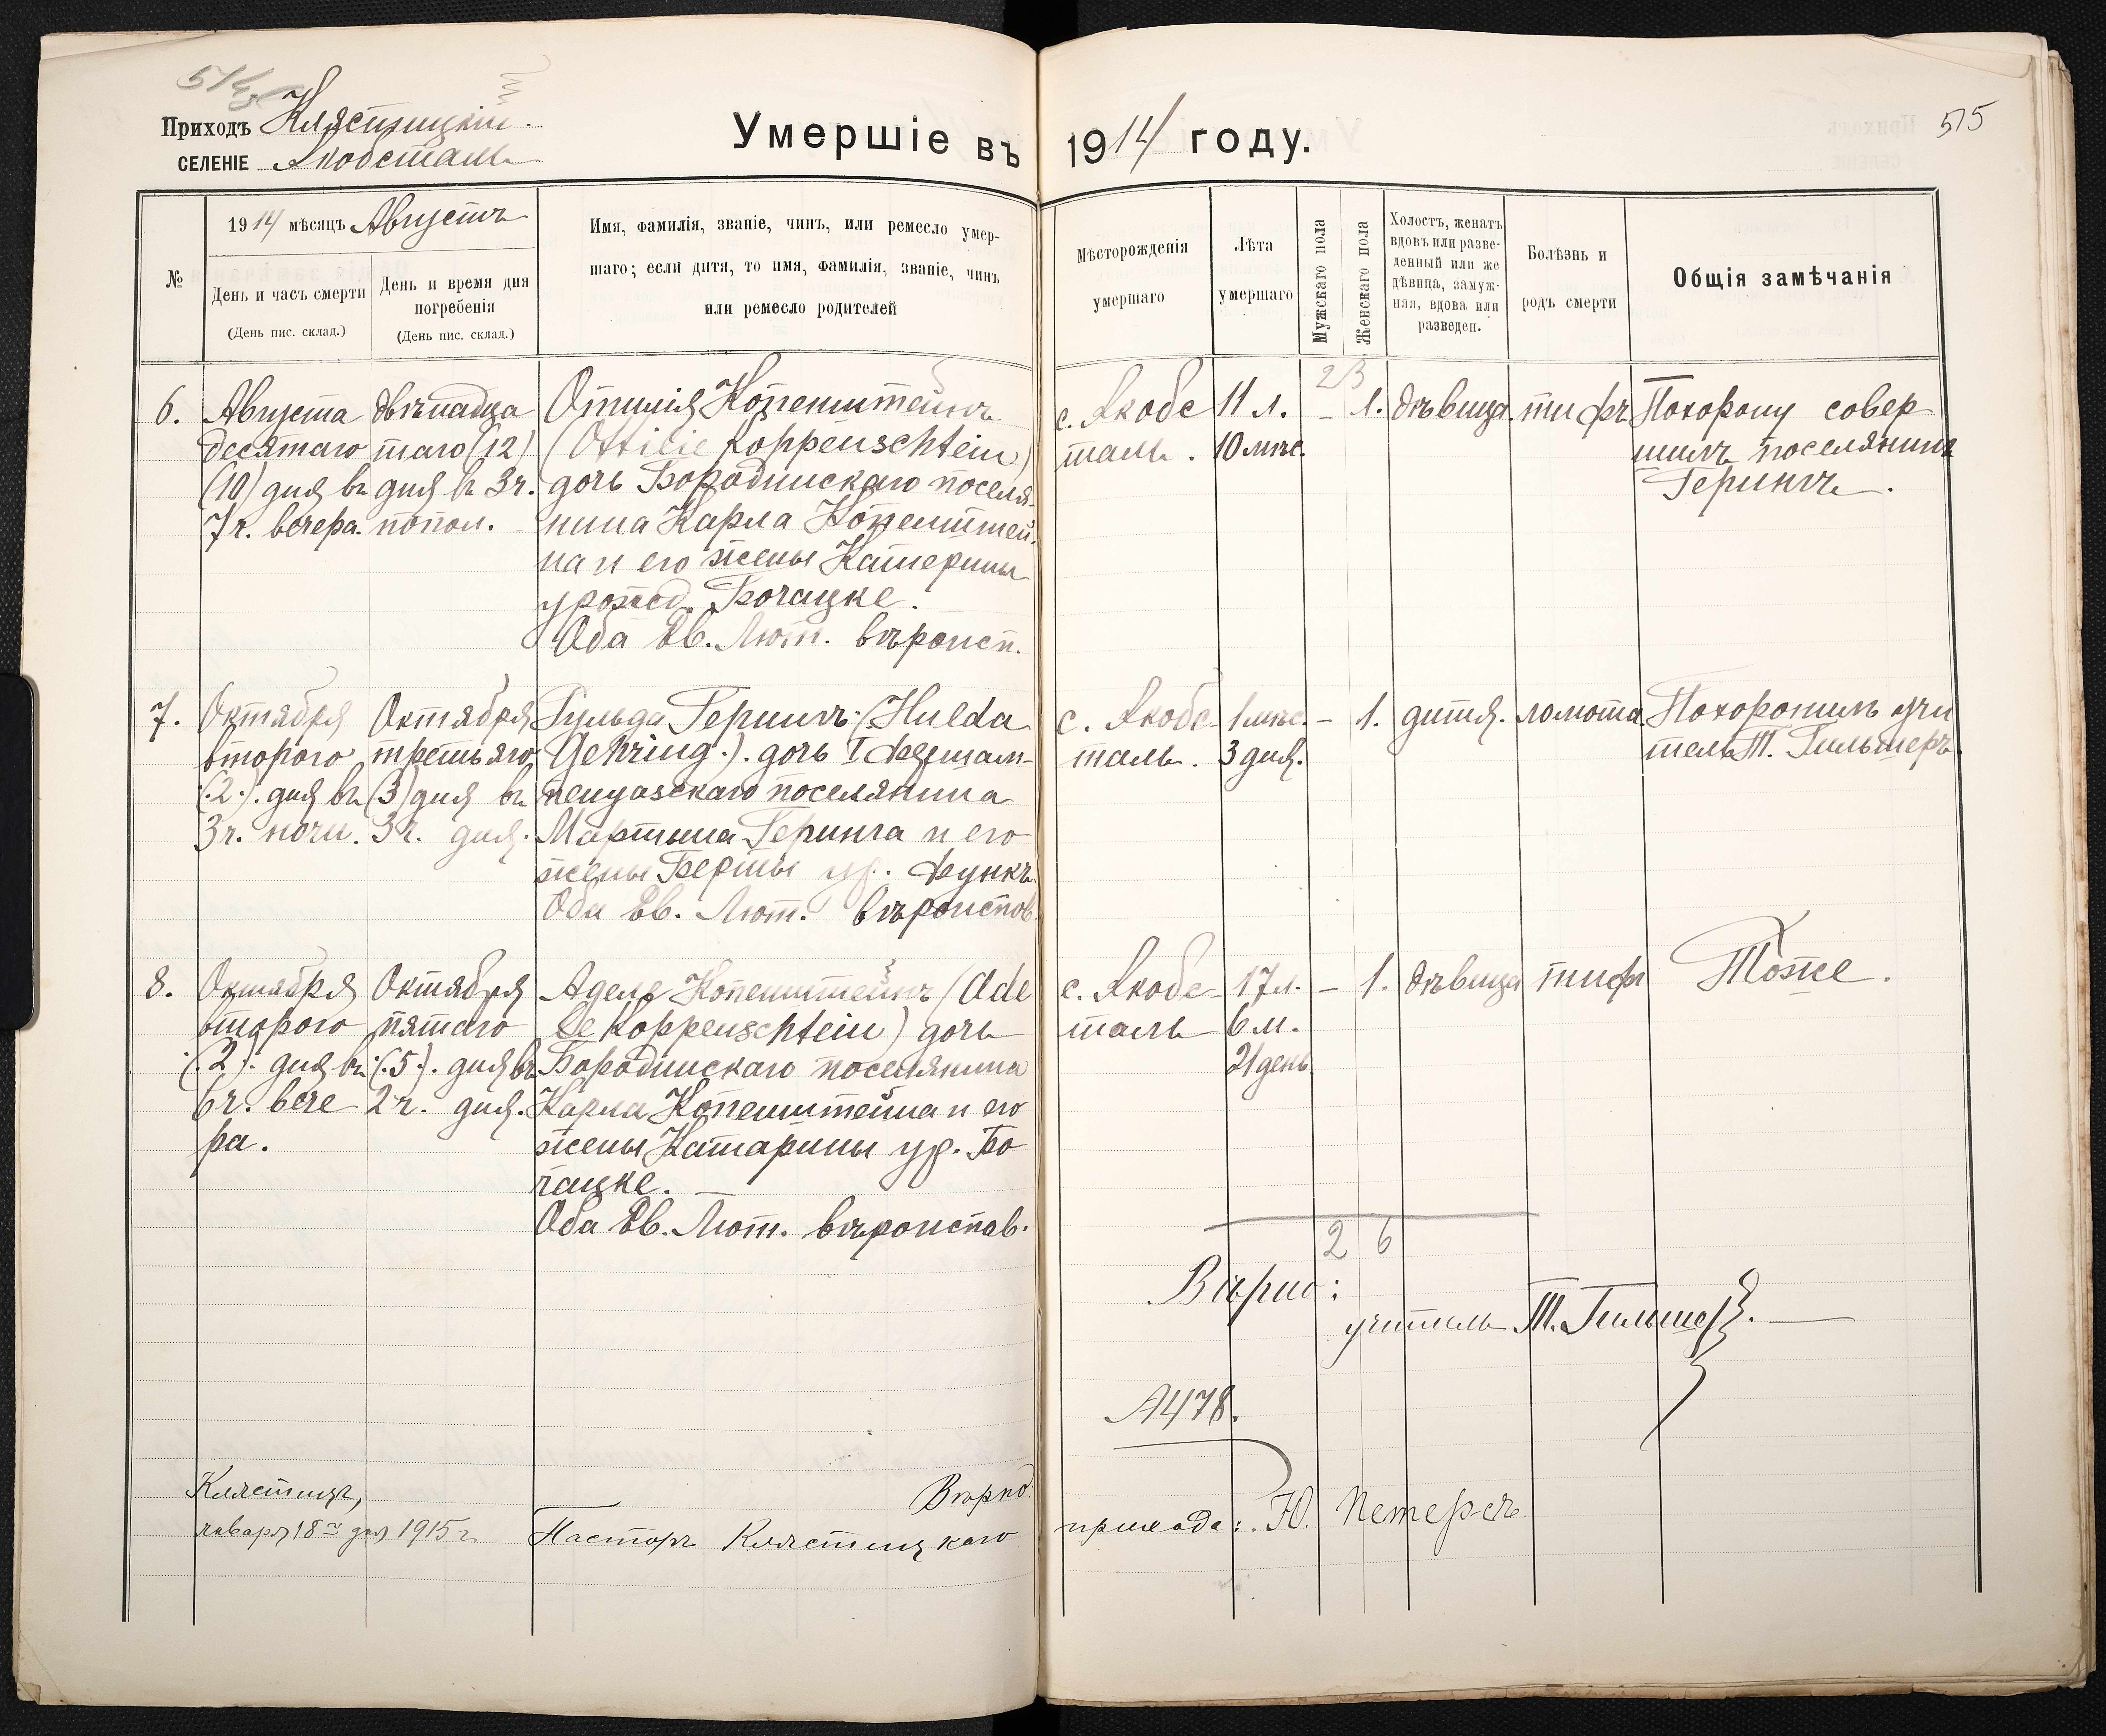 515
Приходъ Клястицкій.
СЕЛЕНІЕ Якобсталь
Умершіе въ 1914 году.
№
1914 мѣсяцъ Августъ
День и часъ смерти
(День пис. склад.)
День и время дня
погребенія
(День пис. склад.)
Имя, фамилія, званіе, чинъ, или ремесло умер-
шаго; если дитя, то имя, фамилія, званіе, чинъ
или ремесло родителей
Мѣсторожденія
умершаго
Лѣта
умершаго
Мужскаго пола
Женскаго пола
Холостъ, женатъ
вдовъ или разве-
денный или же
дѣвица, замуж-
няя, вдова или
разведен.
Болѣзнь и
родъ смерти
Общія замѣчанія
2 3
6.
Августа
десятаго
(10) дня въ
7 ч. вечера.
двѣнадца
таго (12)
дня въ 3 ч.
попол.
Отилія Копенштейнъ
(Ottilie Koppenschtein)
дочь Бородинскаго поселя-
нина Карла Копенштей-
на и его жены Катерины
урожд. Бочацке.
Оба Ев. Лют. вѣроисп.
с. Якобс
таль.
11 л.
10 мѣс.
– 1.
дѣвица.
тифъ
Похорону совер
шилъ поселянинъ
Герингъ.
7.
Октября
второго
(.2.). дня въ
3 ч. ночи.
Октября
третьяго
(3) дня въ
3 ч. дня.
Гульда Герингъ (Hulda
Gehring.). дочь I Фершам-
пенуазскаго поселянина
Мартина Геринга и его
жены Берты ур. Функъ.
Оба Ев. Лют. вѣроиспов
с. Якобс
таль.
1 мѣс.
3 дня.
– 1.
дитя.
ломота.
Похоронилъ учи
тель Т. Гильшеръ.
8.
Октября
второго
(.2.). дня въ
6 ч. вече
ра.
Октября
пятаго
(.5.). дня въ
2 ч. дня.
Аделе Копенштейнъ (Ade
le Koppenschtein) дочь
Бородинскаго поселянина
Карла Копенштейна и его
жены Катарины ур. Бо
чацке.
Оба Ев. Лют. вѣроиспов.
с. Якобс-
таль
17 л.
6 м.
21 день
– 1.
дѣвица
тифъ
Тоже.
2 6
Вѣрно:
учитель Т. Гильшеръ.
A478.
Клястицъ,
января 18го дня 1915 г.
Вѣрно.
Пасторъ Клястицкаго прихода: Ю. Петерсъ.